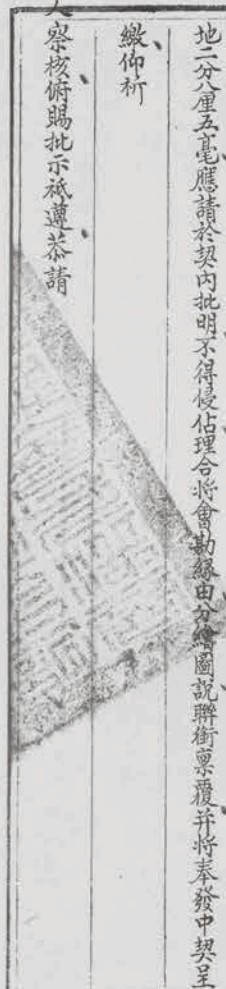 地二分八厘五毫應請於契内批明不得侵佔理合將會勘緣由分繪圖說聯銜稟覆并將奉發中契呈
繳仰祈
察核俯賜批示祇遵恭請